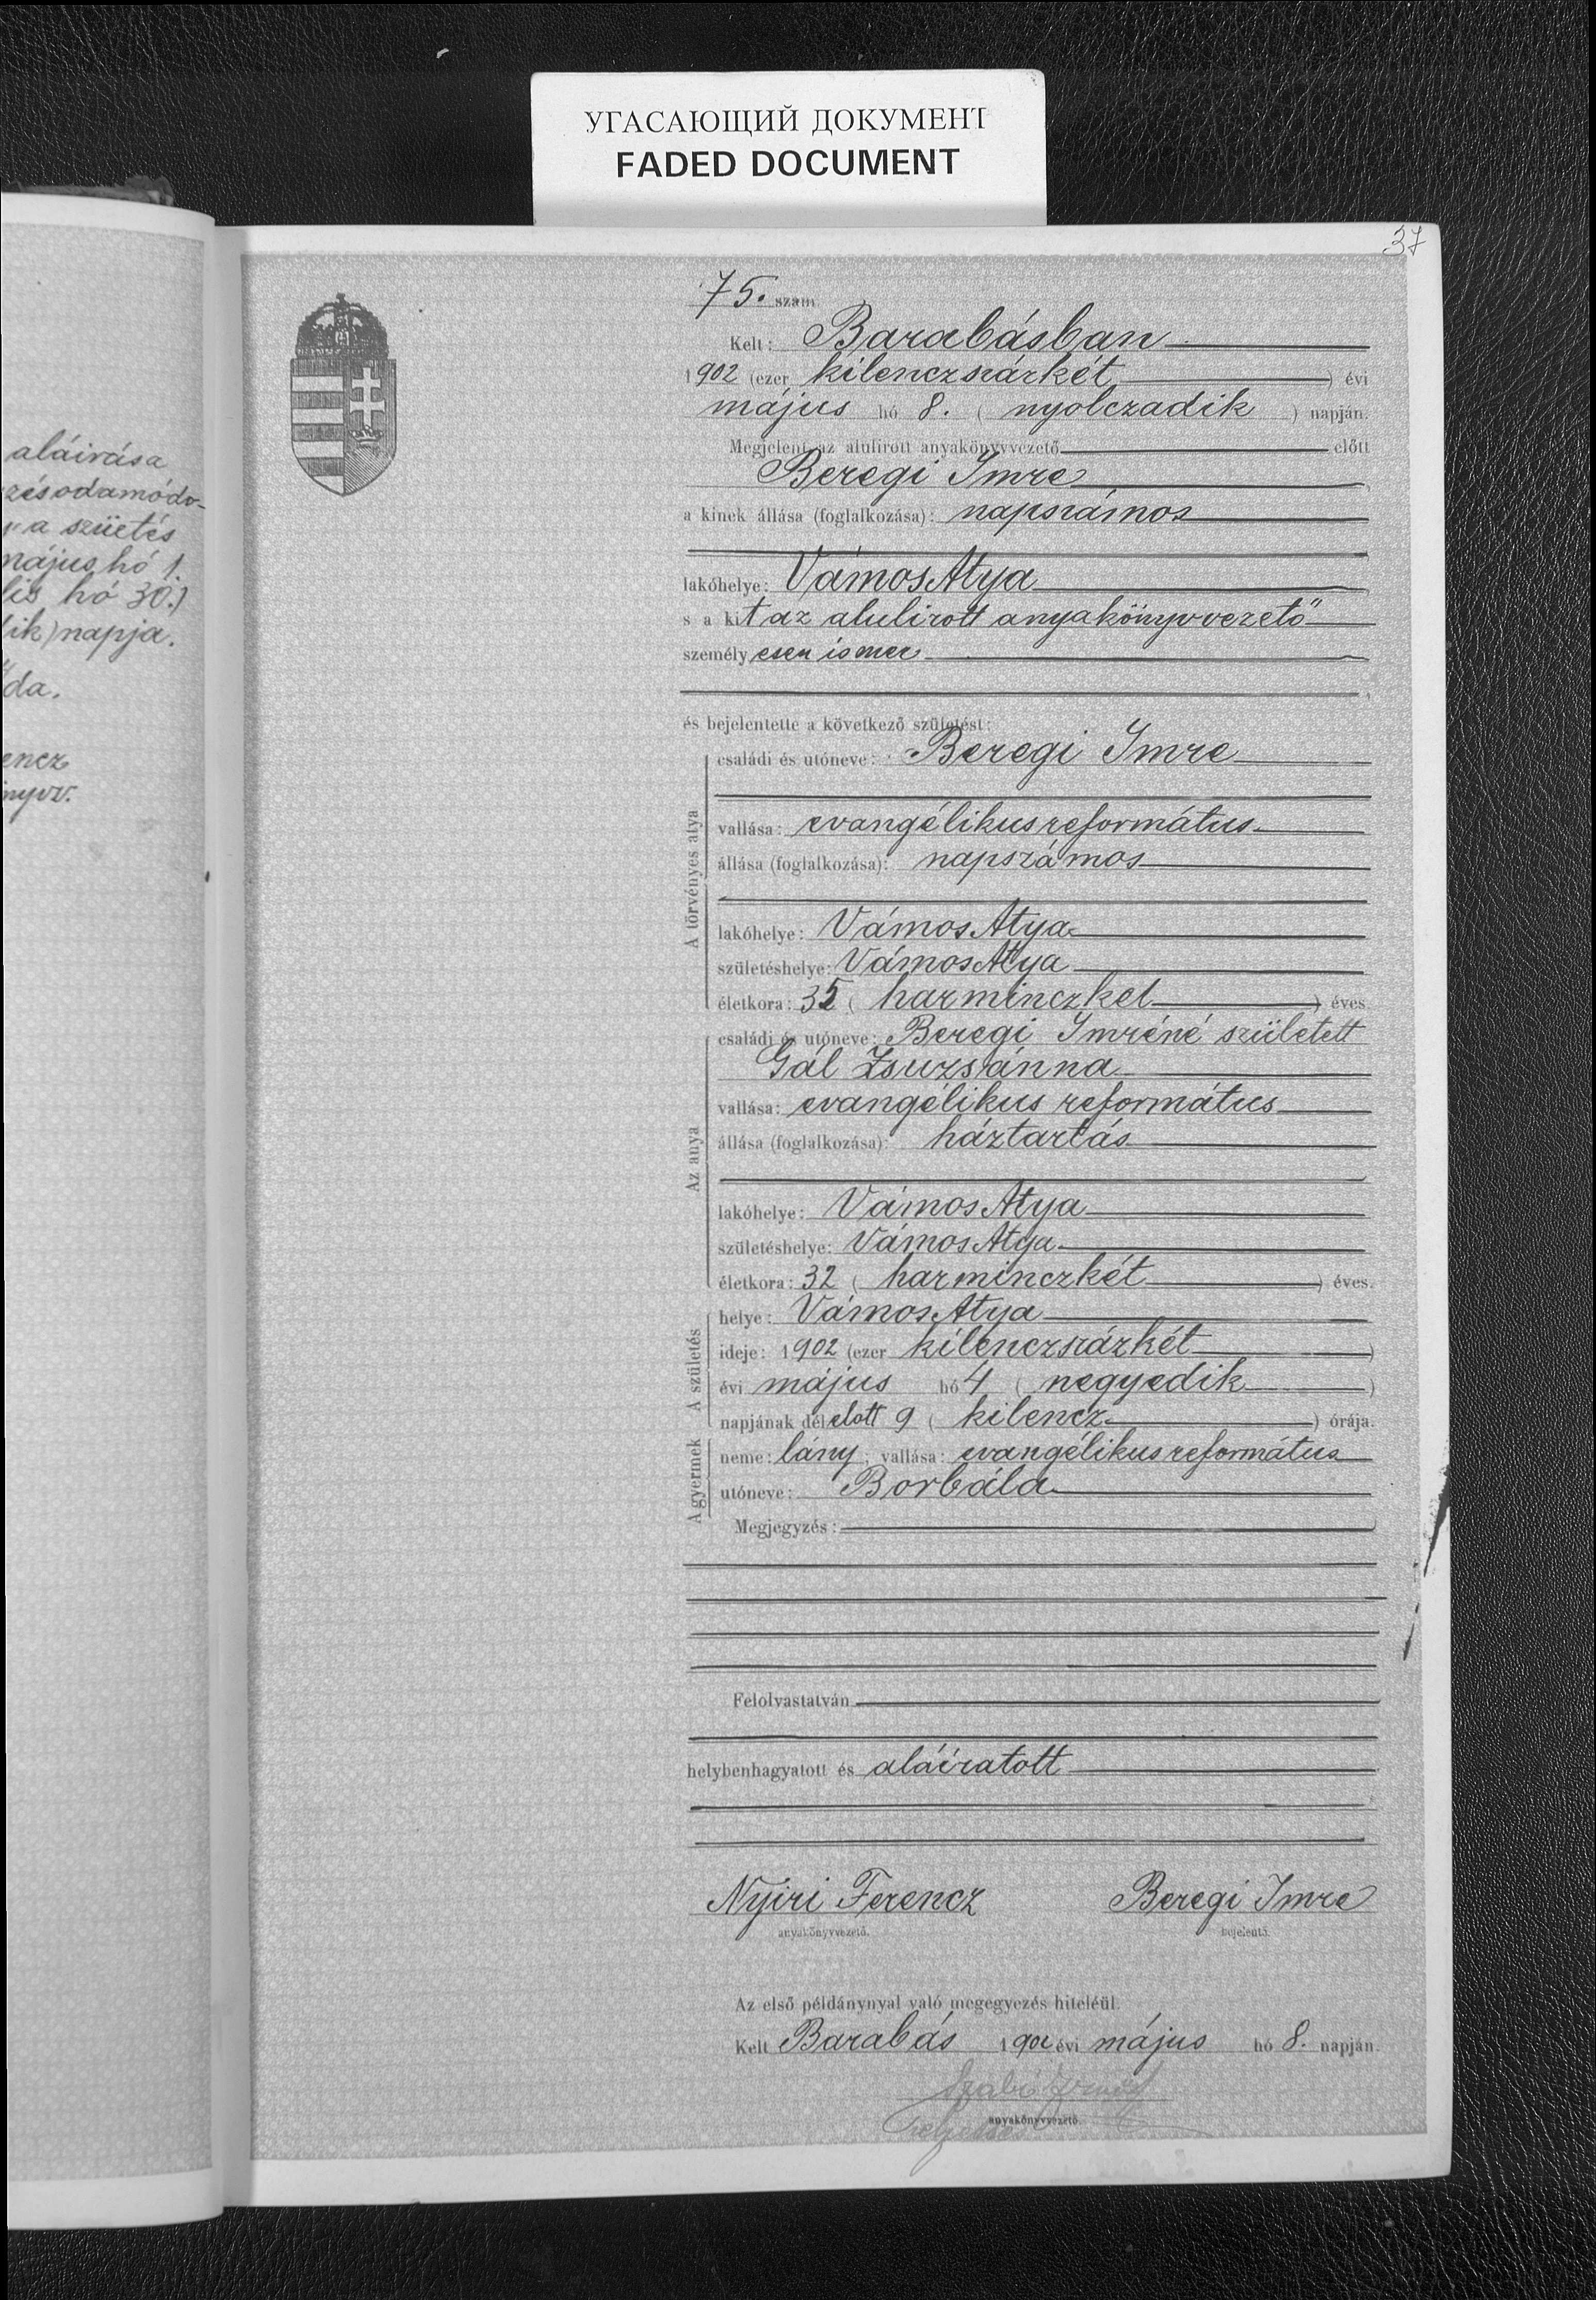 УГАСАЮЩИЙ ДОКУМЕНТ
FADED DOCUMENT
37
aláirása
zés odamódo-
a szüetés
május hó 1.
lis hó 30.)
dik) napja.
da.
encz
nyvv.
75. szám
Kelt: Barabásban
1902 (ezer kilenczszázkét) évi
május hó 8. (nyolczadik) napján.
Megjelent az alulirott anyakönyvvezető előtt
Beregi Imre
a kinek állása (foglalkozása): napszámos
lakóhelye: VámosAtya
s a kit az alulirott anyakönyvvezető
személyesen ismer
és bejelentette a következő születést:
A törvényes atya
családi és utóneve: Beregi Imre
vallása: evangélikus református
állása (foglalkozása): napszámos
lakóhelye: VámosAtya
születéshelye: VámosAtya
életkora: 35 (harminczket) éves
Az anya
családi és utóneve: Beregi Imréné született
Gál Zsuzsánna
vallása: evangélikus református
állása (foglalkozása): háztartás
lakóhelye: VámosAtya
születéshelye: VámosAtya
életkora: 32 (harminczkét) éves.
A születés
helye: VámosAtya
ideje: 1902 (ezer kilenczszázkét)
évi május hó 4 (negyedik)
napjának délelott 9 (kilencz) órája.
A gyermek
neme: lány; vallása: evangélikus református
utóneve: Borbála
Megjegyzés:
Felolvastatván
helybenhagyatott és aláiratott
Nyiri Ferencz Beregi Imre
anyakönyvvezető. bejelentő.
Az első példánynyal való megegyezés hiteléül.
Kelt Barabás 1902 évi május hó 8. napján.
Szabó
anyakönyvvezető